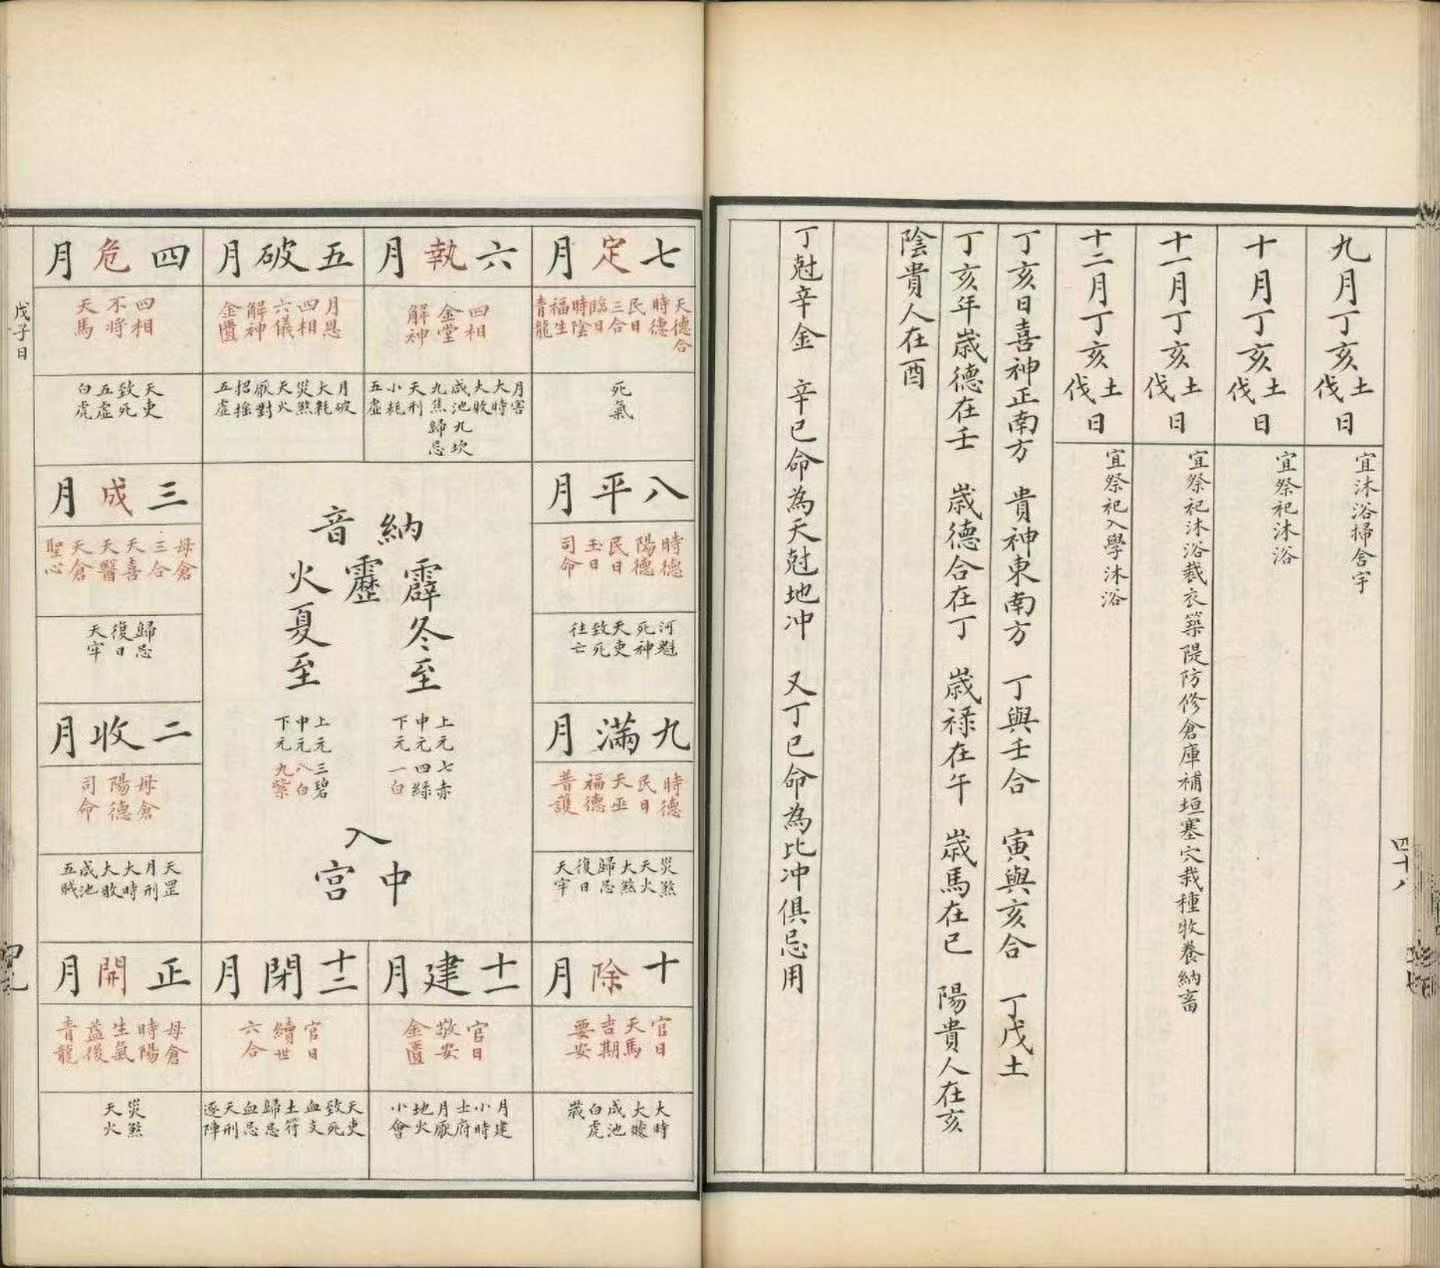 九月丁亥土伐日
宜沐浴掃舍宇
十月丁亥土伐日
宜祭祀沐浴
十一月丁亥土伐日
宜祭祀沐浴裁衣築隄防修倉庫補垣塞穴栽種收養納畜
十二月丁亥土伐日
宜祭祀入學沐浴
丁亥日喜神正南方 貴神東南方 丁與壬合 寅與亥合 丁戊土
丁亥年歲德在壬 歲德合在丁 歲祿在午 歲馬在巳 陽貴人在亥
陰貴人在酉
丁尅辛金 辛巳命為天尅地冲 又丁巳命為比冲俱忌用
四十八
七定月
天德合
時德
民日
三合
臨日
時陰
福生
青龍
死氣
六執月
四相
金堂
解神
月害
大時
大敗
咸池
九坎
九焦
歸忌
天刑
小耗
五虛
五破月
月恩
四相
六儀
解神
金匱
月破
大耗
災煞
天火
厭對
招搖
五虛
四危月
四相
不將
天馬
天吏
致死
五虛
白虎
八平月
時德
陽德
民日
玉日
司命
河魁
死神
天吏
致死
往亡
三成月
母倉
三合
天喜
天醫
天倉
聖心
歸忌
復日
天牢
九滿月
時德
民日
天巫
福德
普護
災煞
天火
大煞
歸忌
復日
天牢
二收月
母倉
陽德
司命
天罡
月刑
大時
大敗
咸池
五賊
十除月
官日
天馬
吉期
要安
大時
大㜸
咸池
白虎
歲
十一建月
官日
敬安
金匱
月建
小時
土府
月厭
地火
小會
十二閉月
官日
續世
六合
天吏
致死
血支
土符
歸忌
血忌
天刑
逐陣
正開月
母倉
時陽
生氣
益後
青龍
災煞
天火
納音
霹靂火
冬至
上元七赤
中元四綠
下元一白
夏至
上元三碧
中元八白
下元九紫
入中宮
戊子日